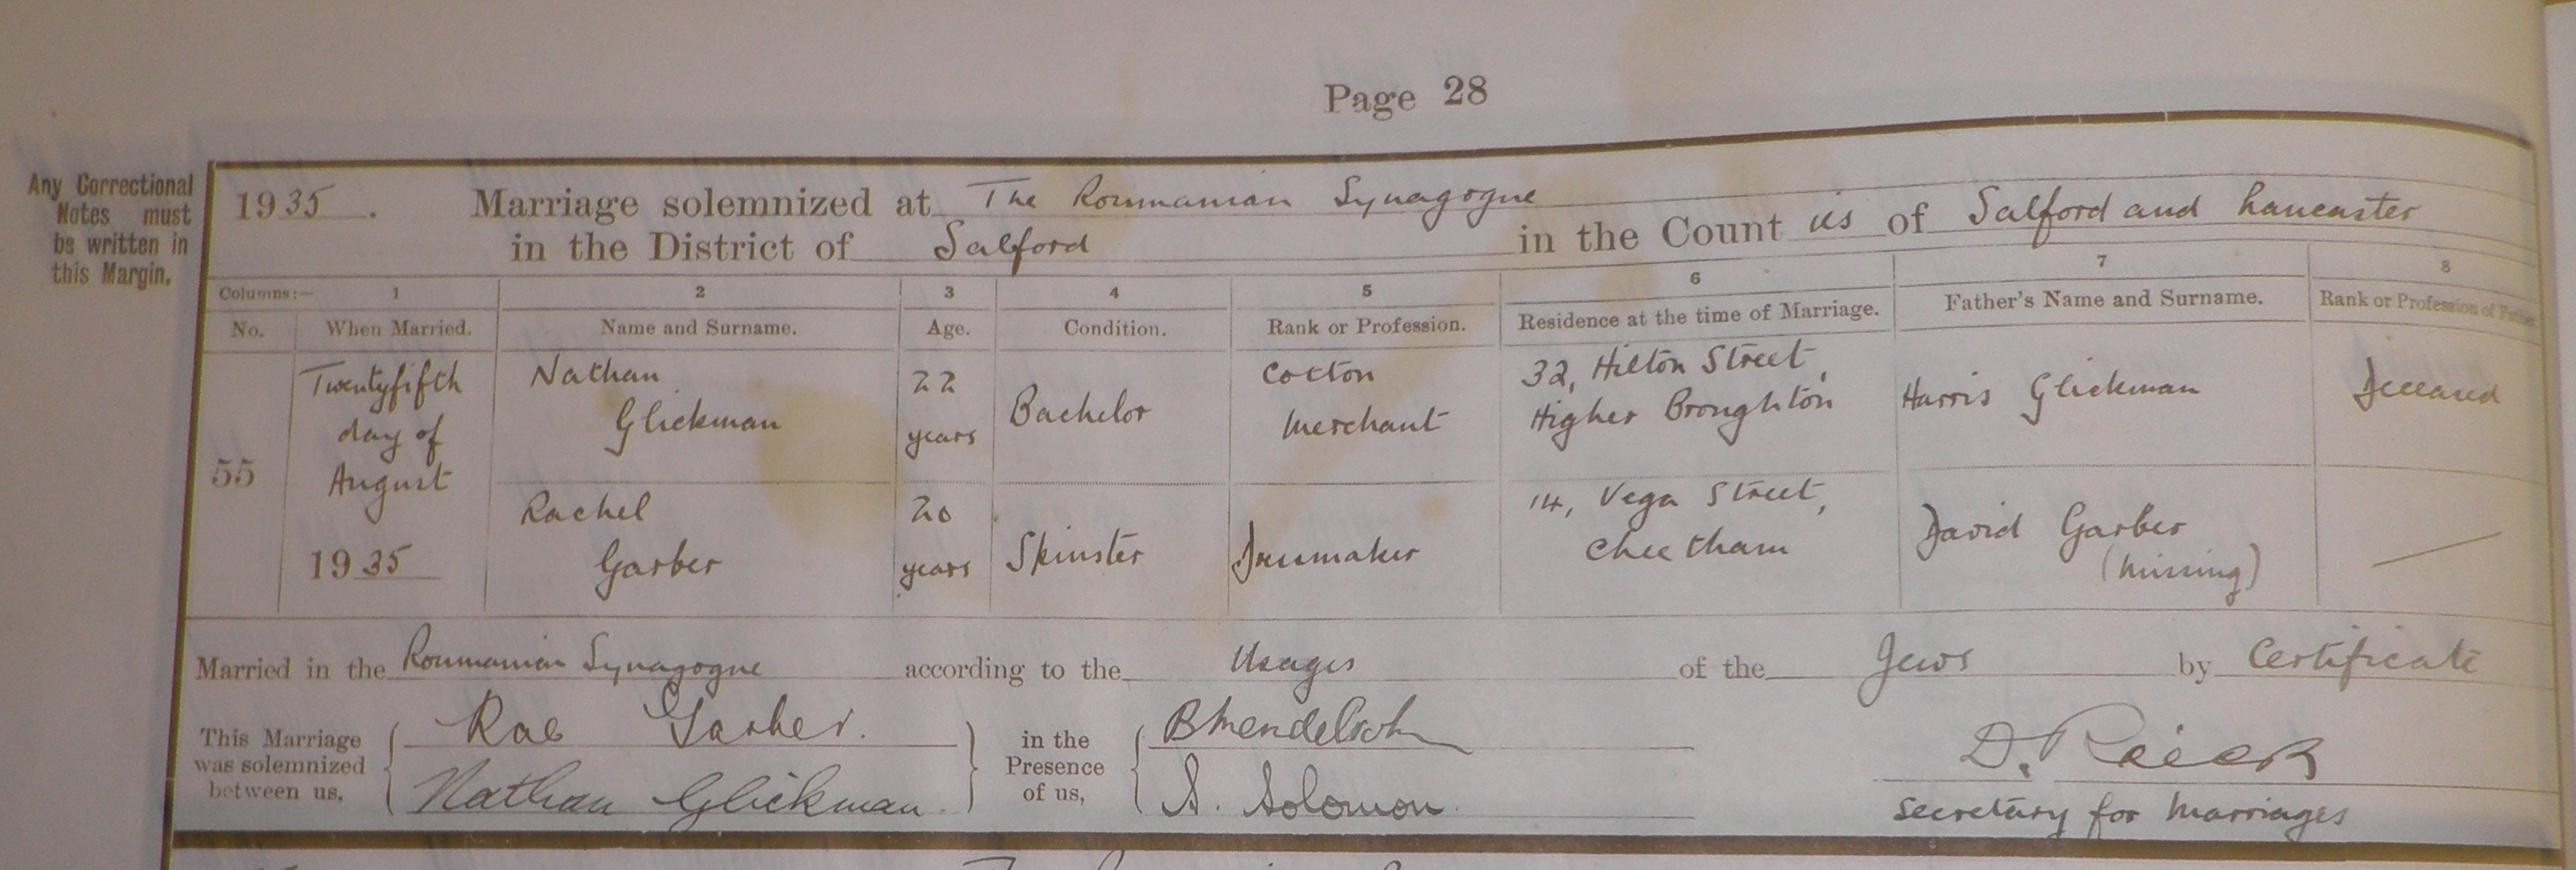 Page 28
Any Correctional
Notes must
be written in
this Margin.
1935. Marriage solemnized at The Roumanian Synagogue
in the District of Salford in the Counties of Salford and Lancaster
Columns:— 1 2 3 4 5 6 7 8
No. When Married. Name and Surname. Age. Condition. Rank or Profession. Residence at the time of Marriage. Father's Name and Surname. Rank or Profession of Father.
55
Twentyfifth
day of
August
1935
Nathan
Glickman
22
years
Bachelor
Cotton
Merchant
32, Hilton Street,
Higher Broughton
Harris Glickman
Deceased
Rachel
Garber
20
years
Spinster
Dressmaker
14, Vega Street,
Cheetham
David Garber
(missing)
Married in the Roumanian Synagogue according to the Usages of the Jews by Certificate
This Marriage
was solemnized
between us,
Rae Garber.
Nathan Glickman.
in the
Presence
of us,
B Mendelsohn
A. Solomon.
D.
Secretary for Marriages